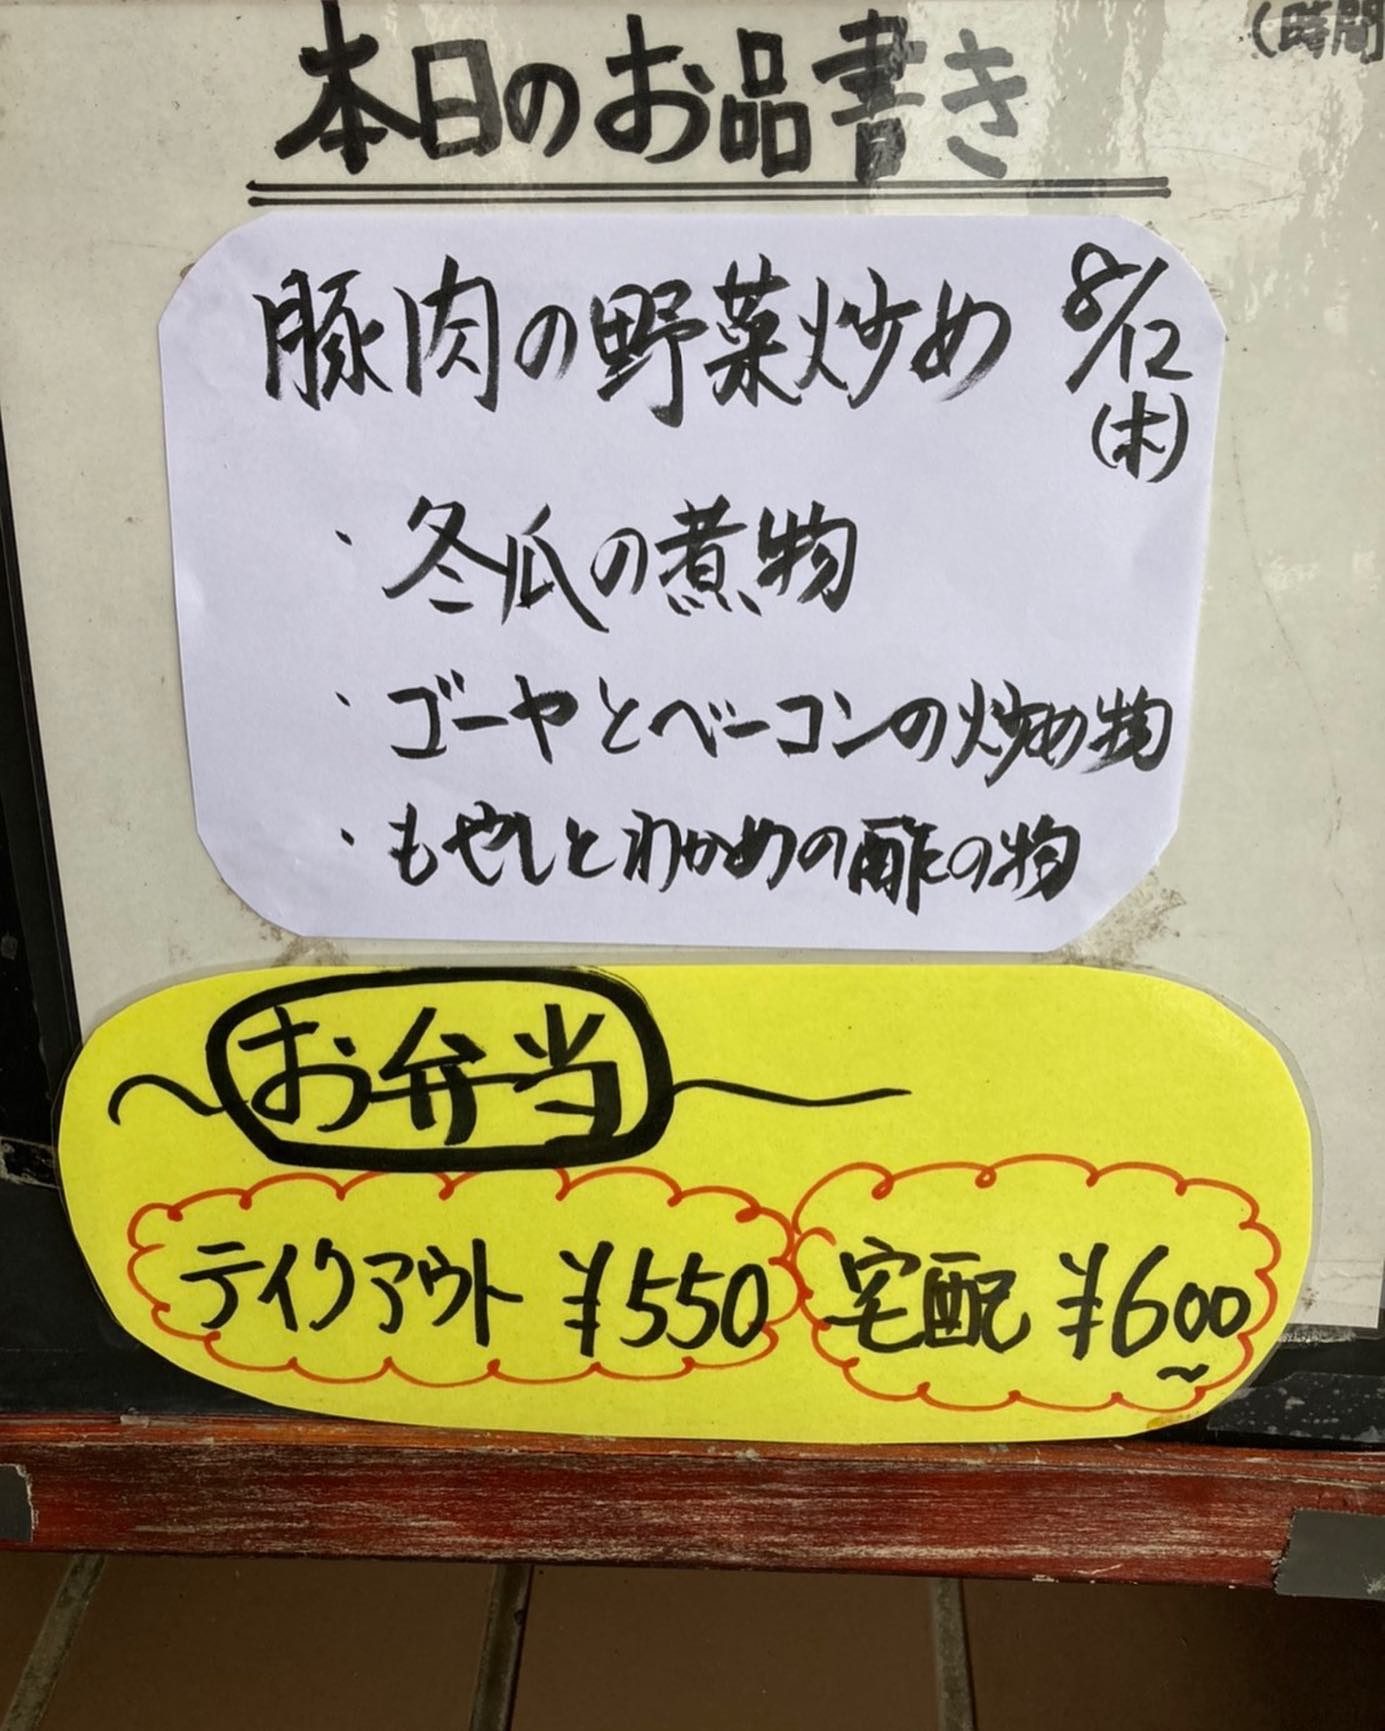 (時間
本日のお品書き
豚肉の野菜炒め 8/12
(木)
・冬瓜の煮物
・ゴーヤとベーコンの炒め物
・もやしとわかめの酢の物
お弁当
テイクアウト ¥550
宅配 ¥600~